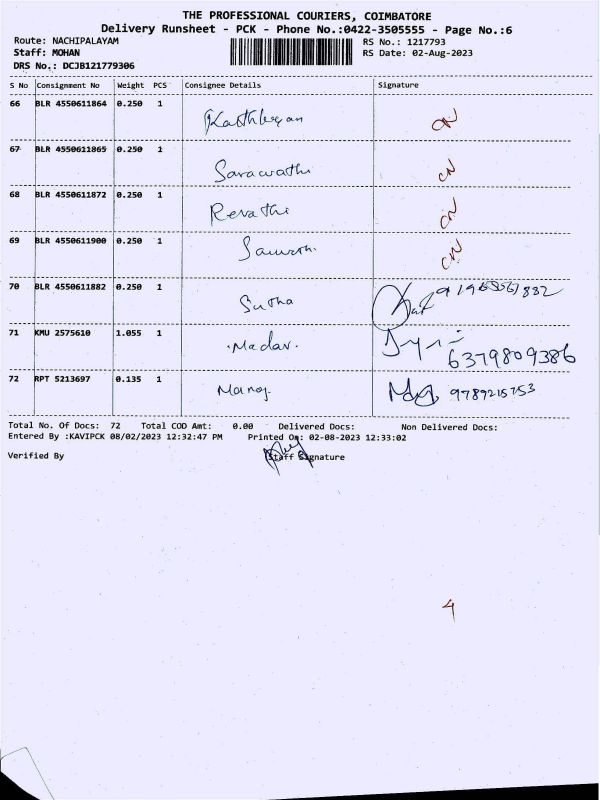 THE PROFESSIONAL COURIERS, COIMBATORE
Delivery Runsheet - PCK - Phone No.:0422-3505555 - Page No.:6
Route: NACHIPALAYAM RS No.: 1217793
Staff: MOHAN RS Date: 02-Aug-2023
DRS No.: DCJB121779306
S No Consignment No Weight PCS Consignee Details Signature
66 BLR 4550611864 0.250 1 CN
67 BLR 4550611865 0.250 1 Sarawathi CN
68 BLR 4550611872 0.250 1 Revathi CN
69 BLR 4550611900 0.250 1 CN
70 BLR 4550611882 0.250 1 Sutha
71 KMU 2575610 1.055 1 Madav. 6379809386
72 RPT 5213697 0.135 1 Manoj 9789215753
Total No. Of Docs: 72 Total COD Amt: 0.00 Delivered Docs: Non Delivered Docs:
Entered By :KAVIPCK 08/02/2023 12:32:47 PM Printed On: 02-08-2023 12:33:02
Verified By Staff Signature
4